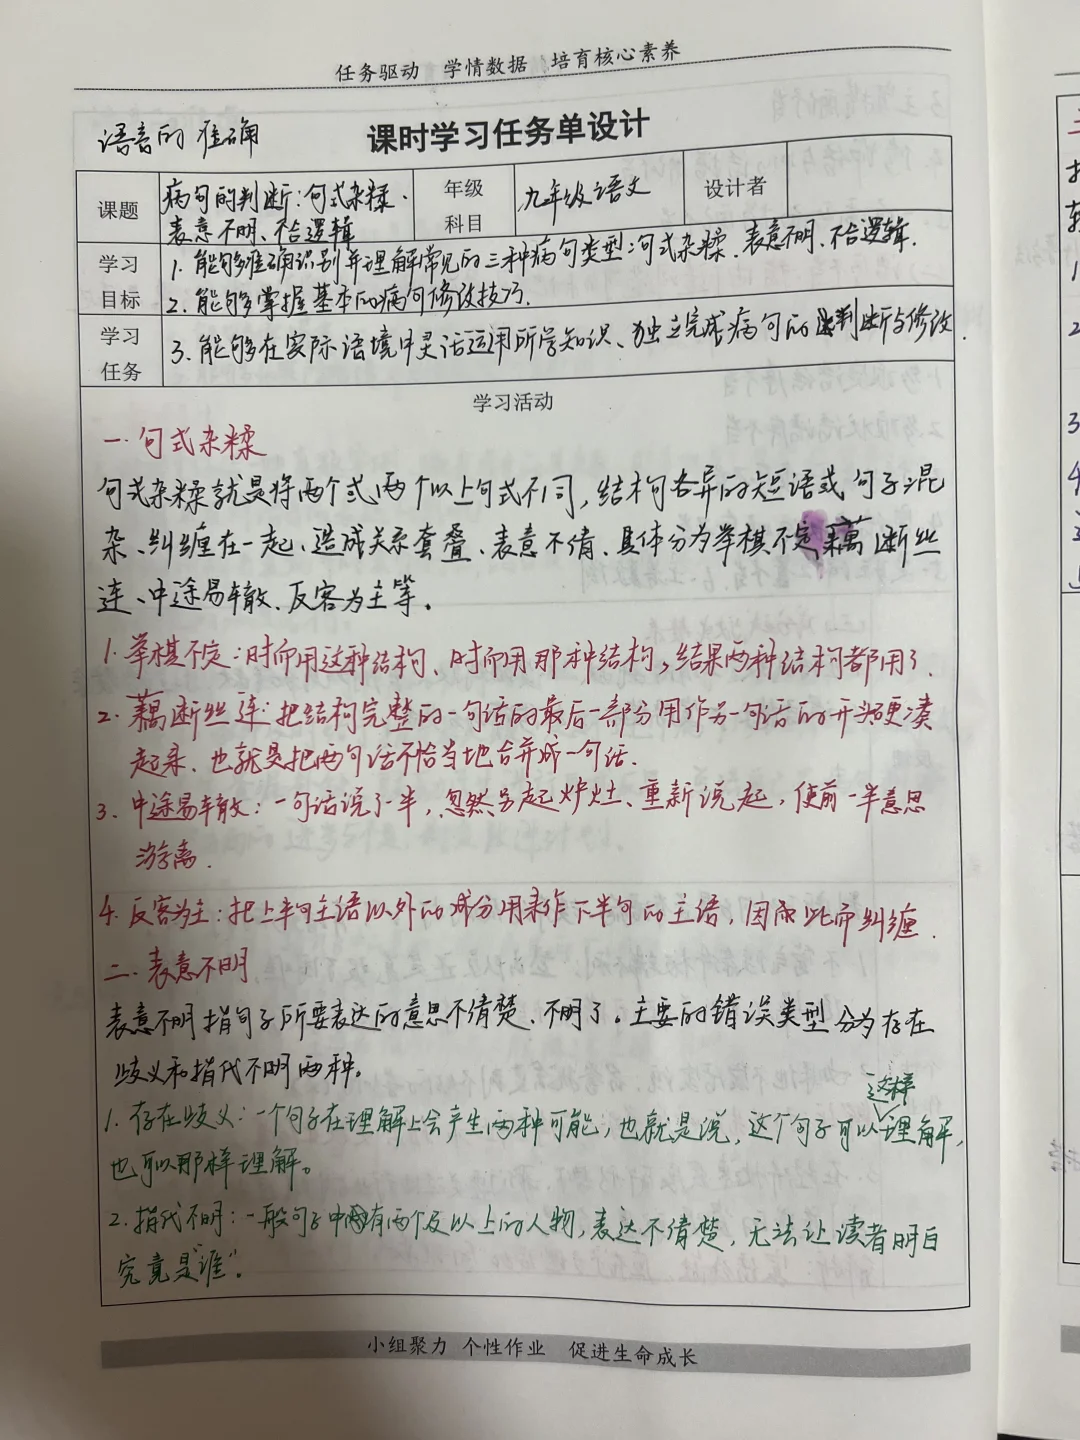 任务驱动 学情数据 培育核心素养
语言的准确
课时学习任务单设计
课题
病句的判断：句式杂糅、
表意不明、不合逻辑
年级
科目
九年级语文
设计者
学习
目标
1. 能够准确识别并理解常见的三种病句类型：句式杂糅、表意不明、不合逻辑.
2. 能够掌握基本的病句修改技巧.
学习
任务
3. 能够在实际语境中灵活运用所学知识、独立完成病句的判断与修改.
学习活动
一. 句式杂糅
句式杂糅就是将两个或两个以上句式不同，结构各异的短语或句子混
杂、纠缠在一起、造成关系套叠、表意不清、具体分为举棋不定、藕断丝
连、中途易辙、反客为主等。
1. 举棋不定：时而用这种结构、时而用那种结构，结果两种结构都用了.
2. 藕断丝连：把结构完整的一句话的最后一部分用作另一句话的开头硬凑
起来、也就是把两句话不恰当地合并成一句话.
3. 中途易辙：一句话说了一半，忽然另起炉灶、重新说起，使前一半意思
游离.
4. 反客为主：把上半句主语以外的成分用来作下半句的主语，因而此而纠缠.
二. 表意不明
表意不明指句子所要表达的意思不清楚、不明了。主要的错误类型分为存在
歧义和指代不明两种。
这样
1. 存在歧义：一个句子在理解上会产生两种可能，也就是说，这个句子可以理解，
也可以那样理解。
2. 指代不明：一般句子中有两个及以上的人物，表达不清楚，无法让读者明白
究竟是“谁”.
小组聚力 个性作业 促进生命成长